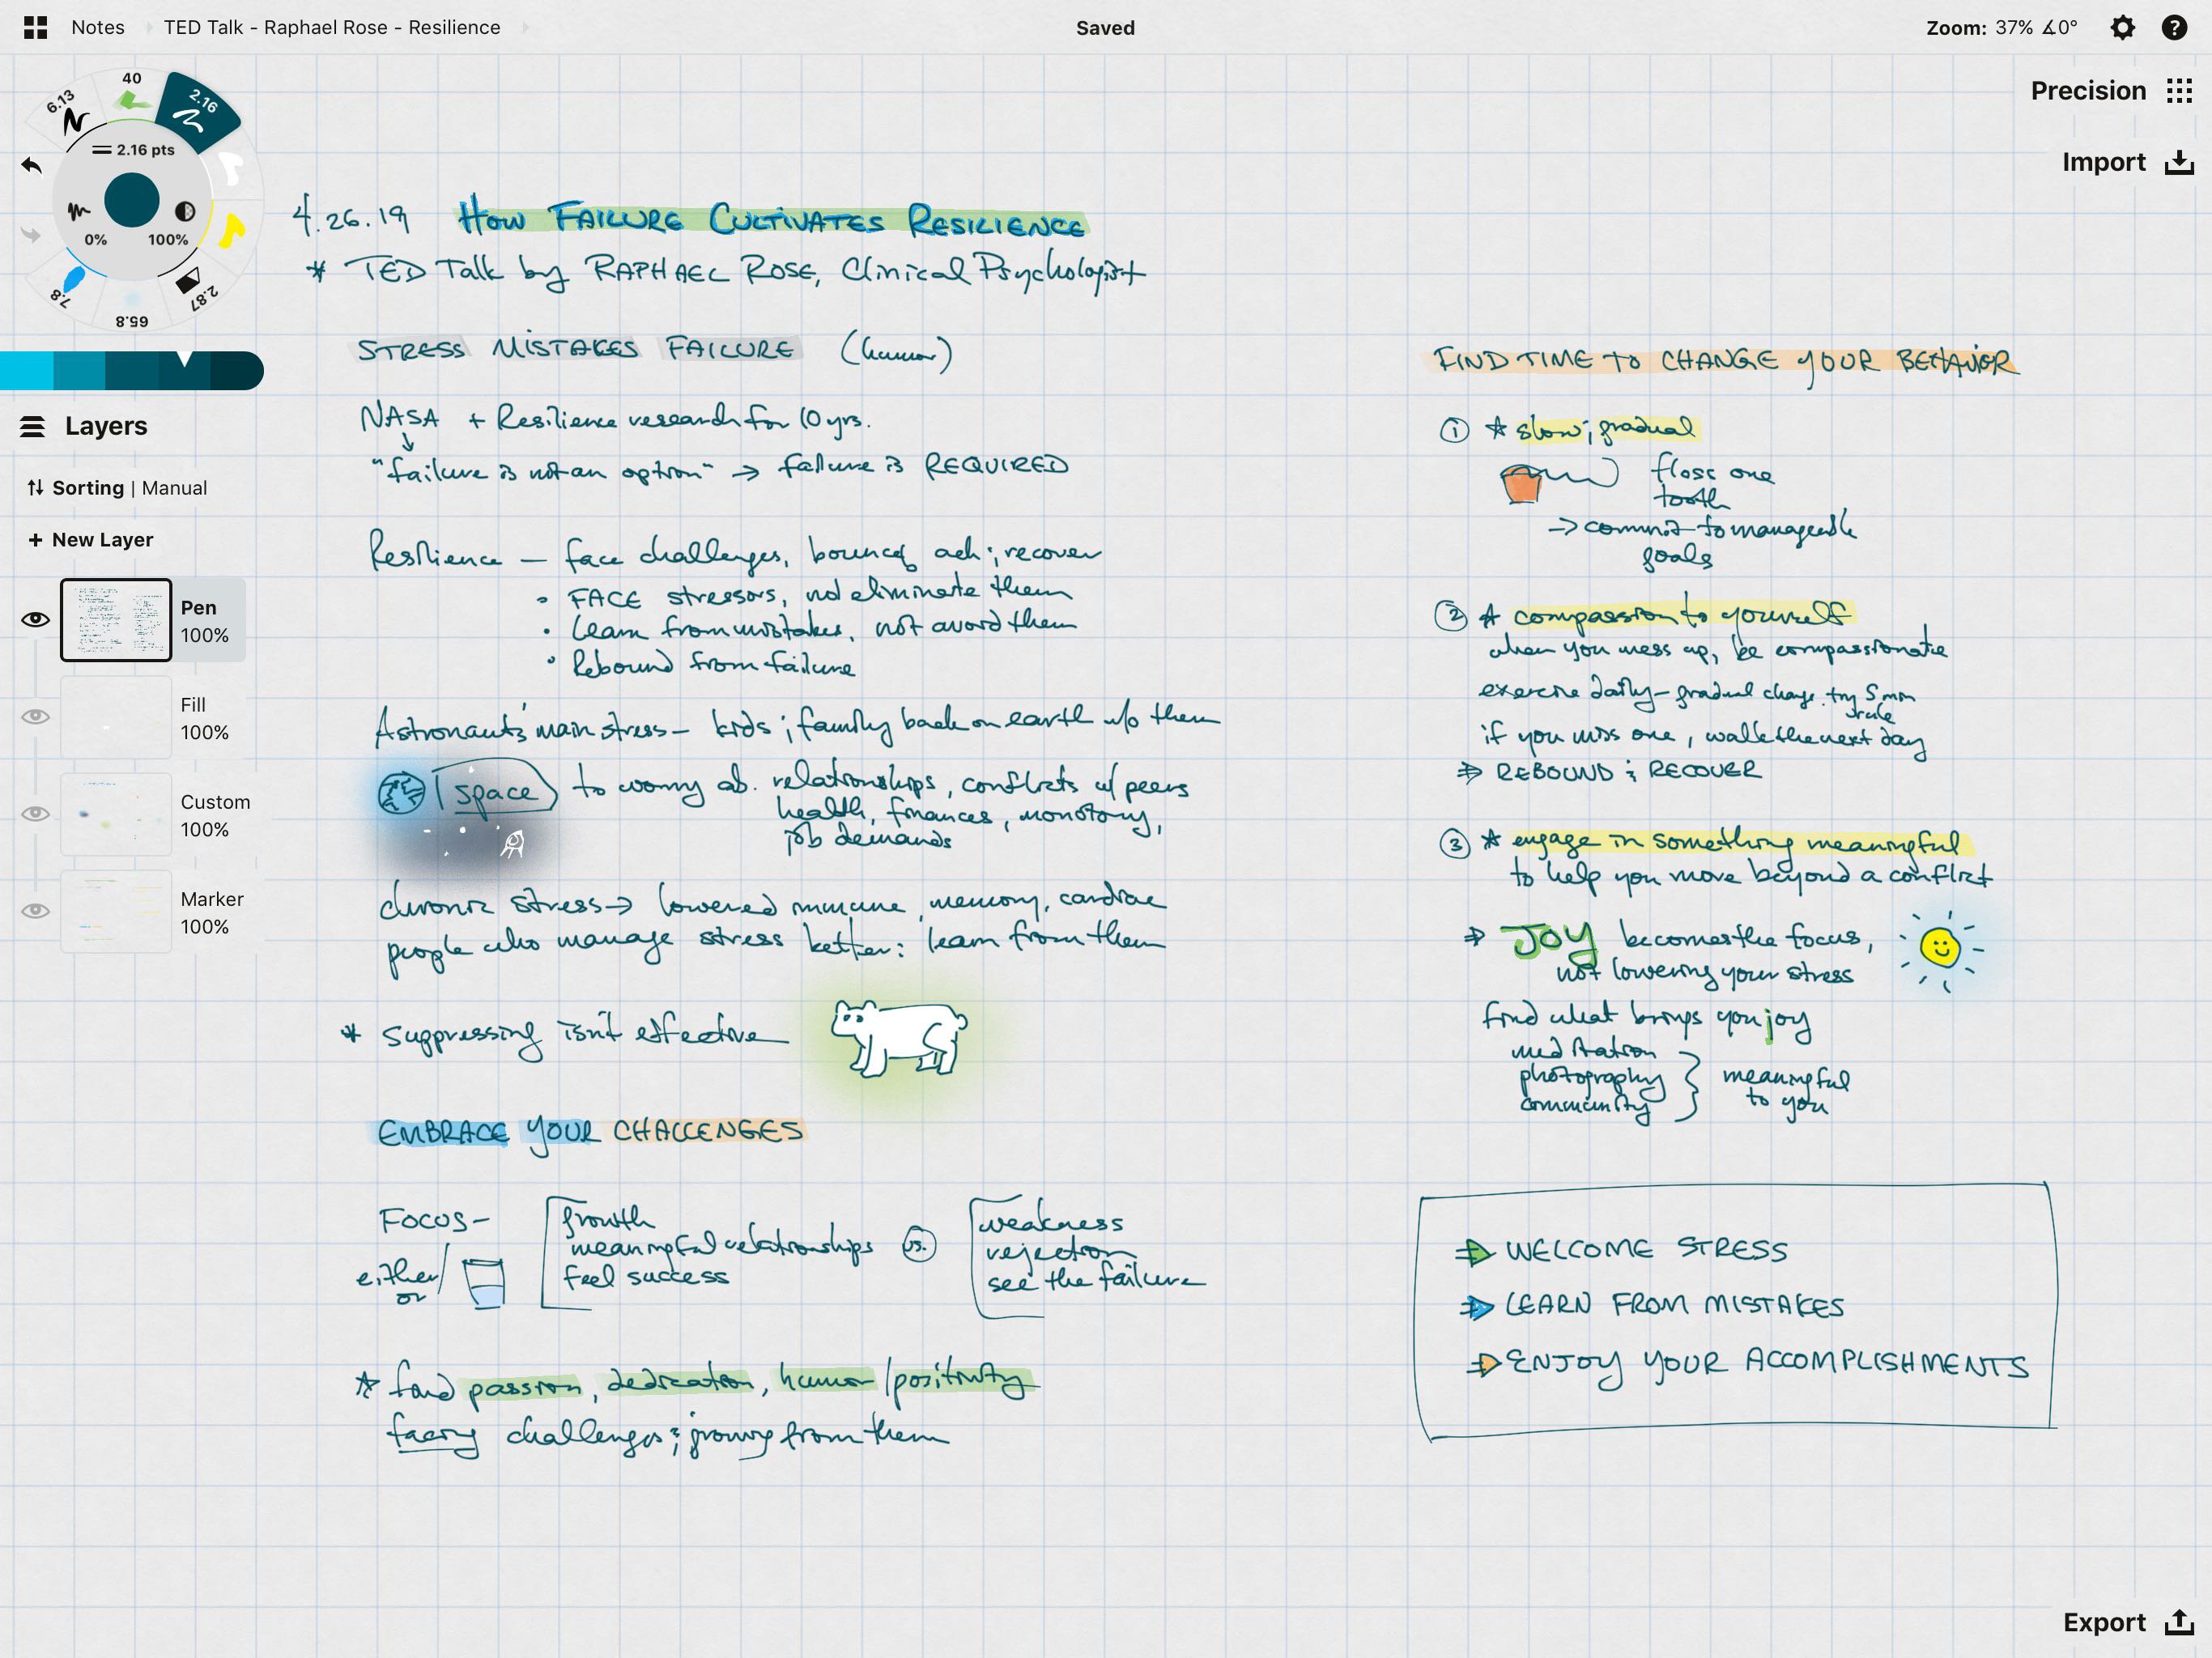 Notes
TED Talk - Raphael Rose - Resilience
Saved
Zoom: 37% ∡0°
Precision
Import
6.13
40
2.16
2.16 pts
0%
100%
7.8
65.8
2.87
Layers
Sorting | Manual
+ New Layer
Pen
100%
Fill
100%
Custom
100%
Marker
100%
4.26.19 HOW FAILURE CULTIVATES RESILIENCE
* TED Talk by RAPHAEL ROSE, Clinical Psychologist
STRESS MISTAKES FAILURE (humor)
NASA + Resilience research for 10 yrs.
↓
"failure is not an option" → failure is REQUIRED
Resilience — face challenges, bounce back & recover
• FACE stressors, not eliminate them
• learn from mistakes, not avoid them
• Rebound from failure
Astronauts' main stress — kids & family back on earth w/o them
space to worry ab. relationships, conflicts w/ peers
health, finances, monotony,
job demands
chronic stress → lowered immune, memory, cardiac
people who manage stress better: learn from them
* suppressing isn't effective
EMBRACE YOUR CHALLENGES
FOCUS —
either/
or
growth
meaningful relationships
feel success
vs.
weakness
rejection
see the failure
* find passion, dedication, humor/positivity
facing challenges & growing from them
FIND TIME TO CHANGE YOUR BEHAVIOR
① * slow & gradual
floss one
tooth
→ commit to manageable
goals
② * compassion to yourself
when you mess up, be compassionate
exercise daily — gradual change. try 5 min
rule
if you miss one, walk the next day
⇒ REBOUND & RECOVER
③ * engage in something meaningful
to help you move beyond a conflict
⇒ JOY becomes the focus,
not lowering your stress
find what brings you joy
meditation
photography
community
meaningful
to you
⇒ WELCOME STRESS
⇒ LEARN FROM MISTAKES
⇒ ENJOY YOUR ACCOMPLISHMENTS
Export